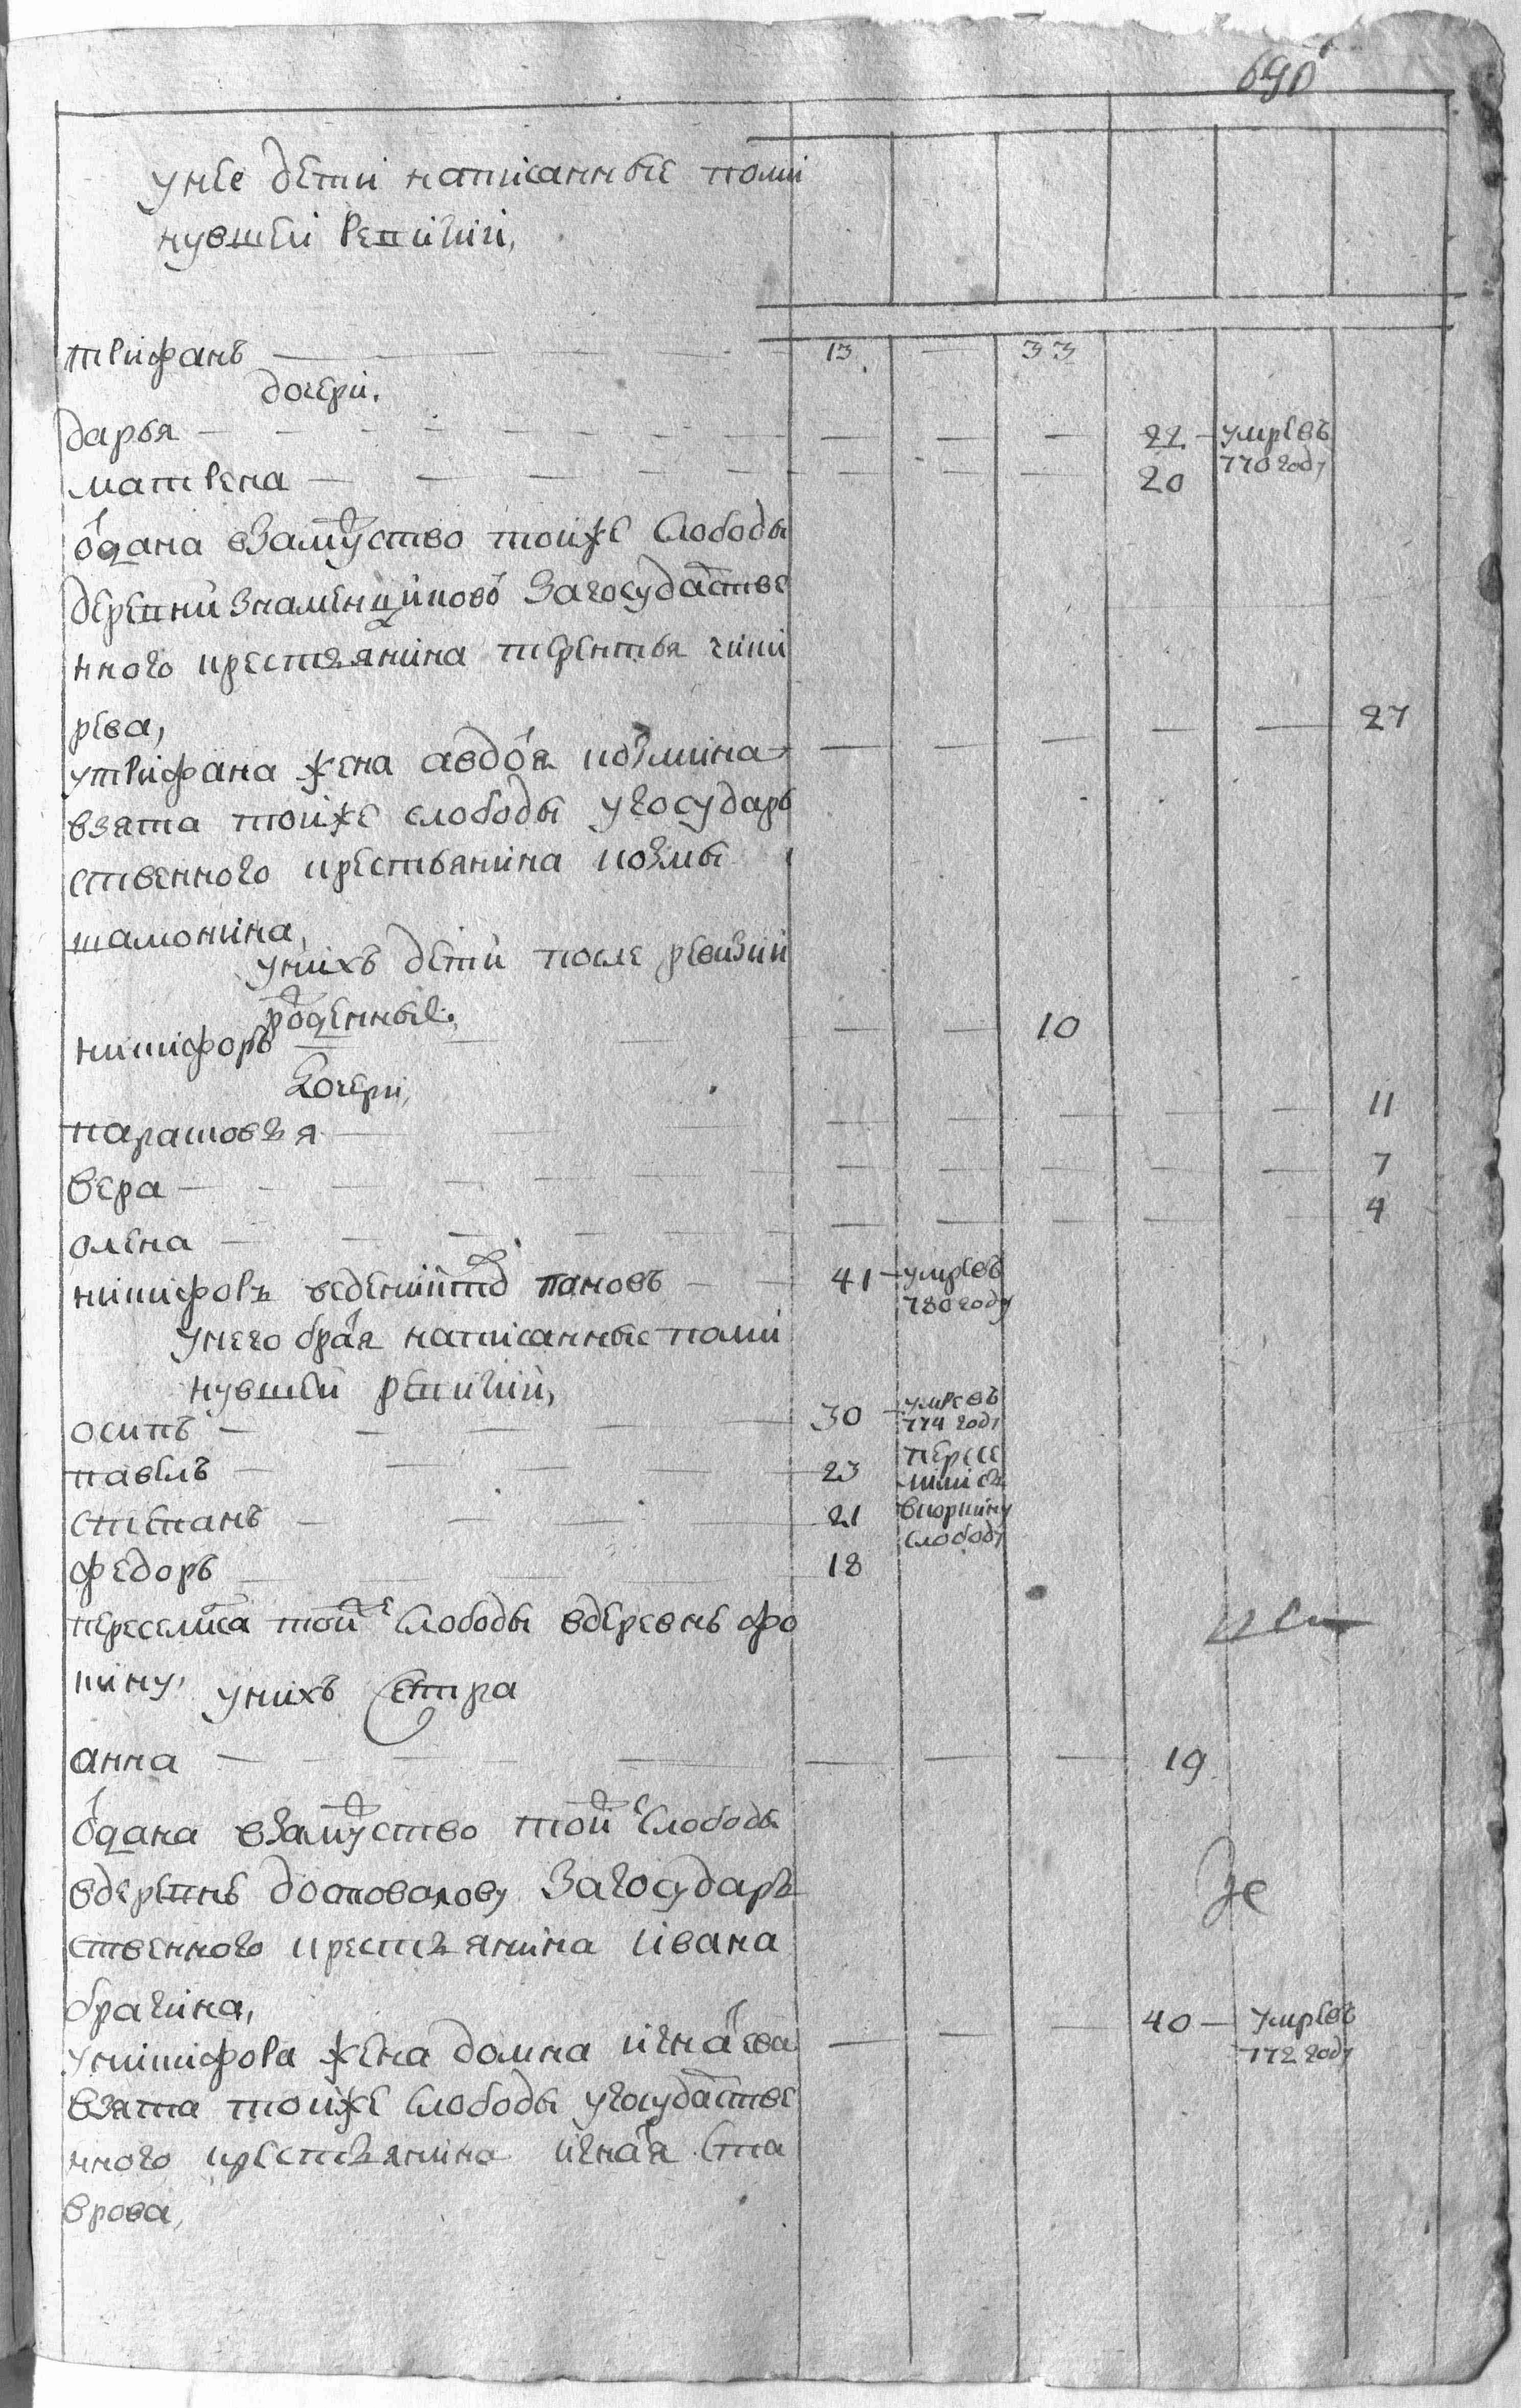 690
унее дети написанные поми
нувшеи ревизии,
трифанъ — 13 — 33
дочери.
дарья — — — — 22 — умре въ 770 году
матрена — — — — 20
отдана взамуство тойже слободы
деревни знаменщиковои загосударстве
нного крестьянина терентья
рева,
утрифана жена авдотя козмина — — — — — 27
взята тойже слободы угосударь
ственного крестьянина козмы
шамонина,
унихъ дети после ревизии
рожденные.
никифоръ — — 10
дочери,
парасковья — — — — — 11
вера — — — — — 7
олена — — — — — 4
никифоръ пановъ — 41 — умре въ 780 году
унего братя написанные поми
нувшеи ревизии,
осипъ — 30 — умре въ 774 году
павелъ — 23 пересе
лились
степанъ — 21 вкоркину
слободу
федоръ — 18
переселился тойже слободы вдеревнь фо
кину, унихъ сестра
анна — — — — 19
отдана взамуство тойже слободы
вдеревнь достовалову загосударь
ственного крестьянина ивана
брагина,
уникифора жена домна игнатева — — — 40 — умре въ 772 году
взята тойже слободы угосударстве
нного крестьянина игнатя ста
врова,